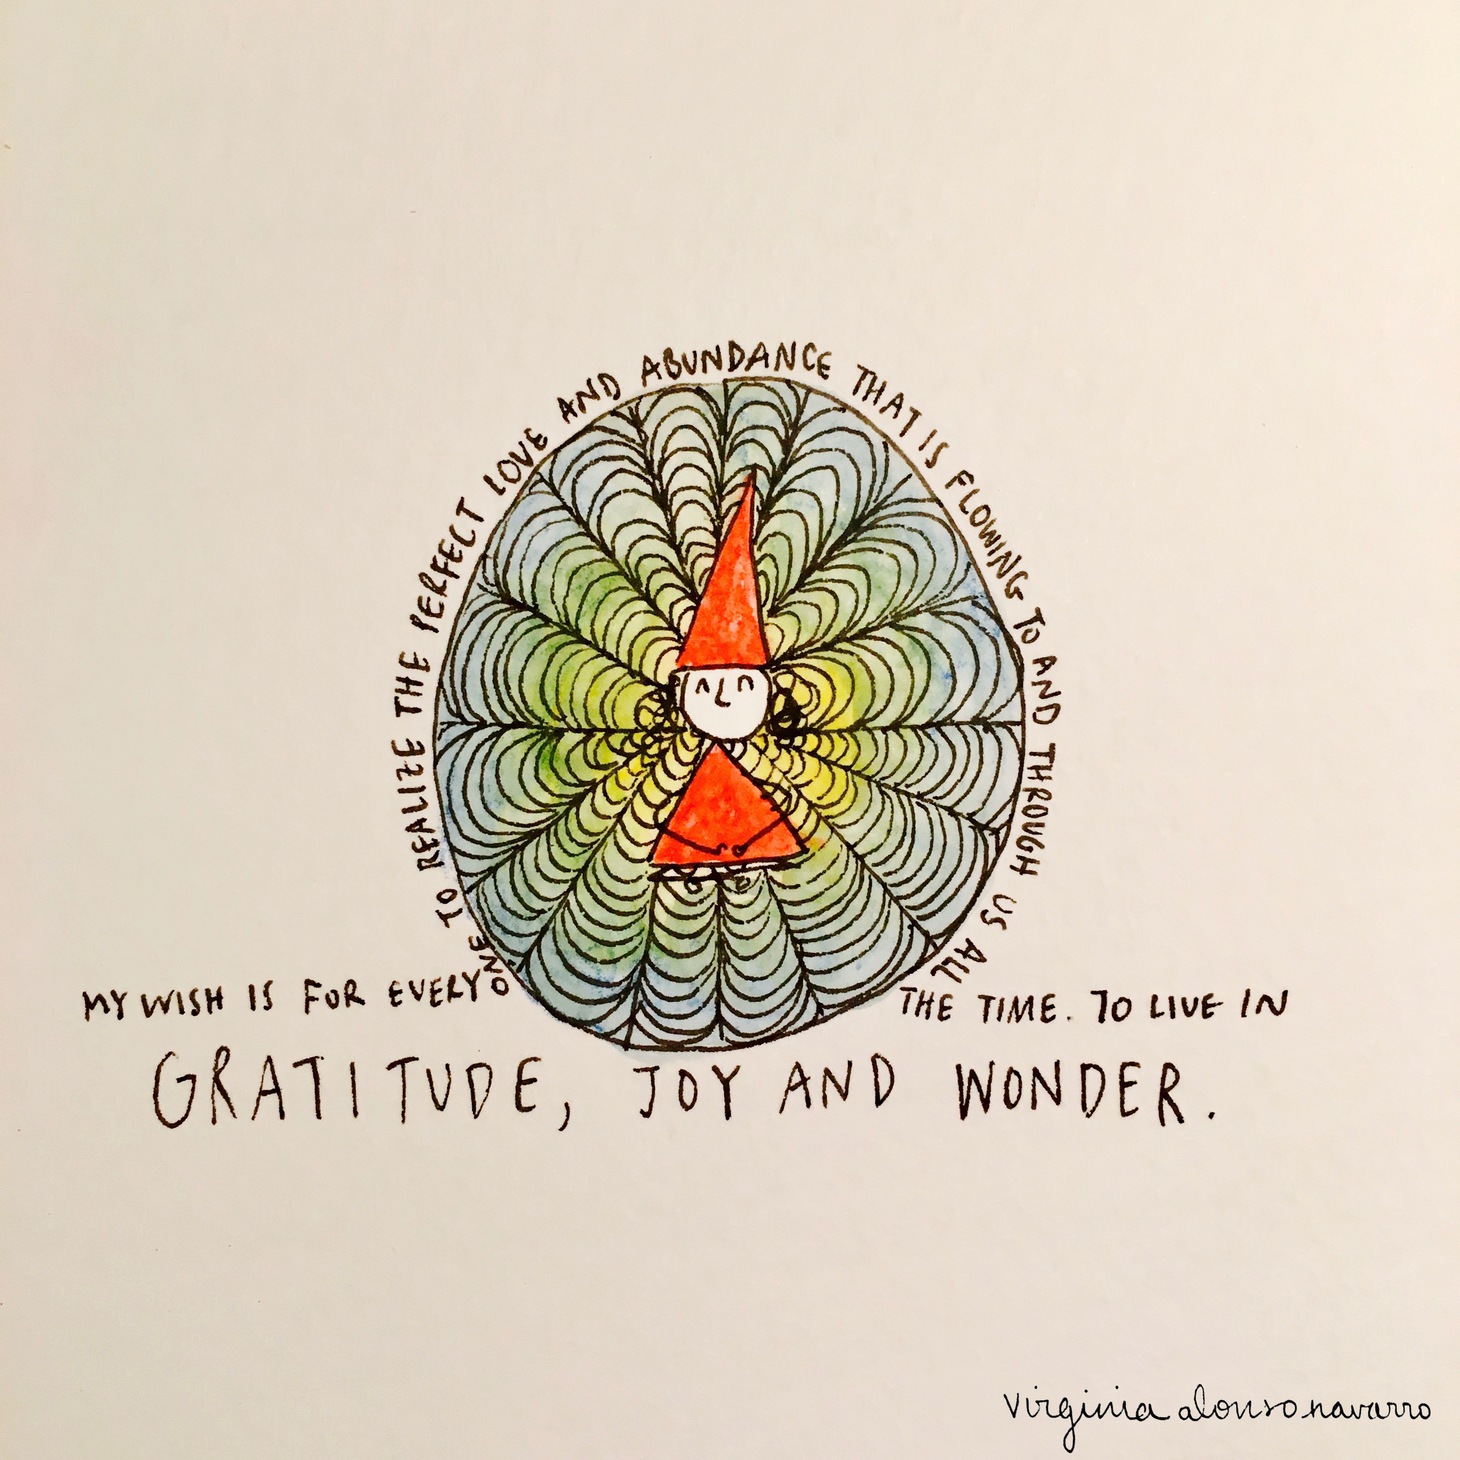 MY WISH IS FOR EVERYONE TO REALIZE THE PERFECT LOVE AND ABUNDANCE THAT IS FLOWING TO AND THROUGH US ALL THE TIME. TO LIVE IN
GRATITUDE, JOY AND WONDER.
virginia alonso navarro